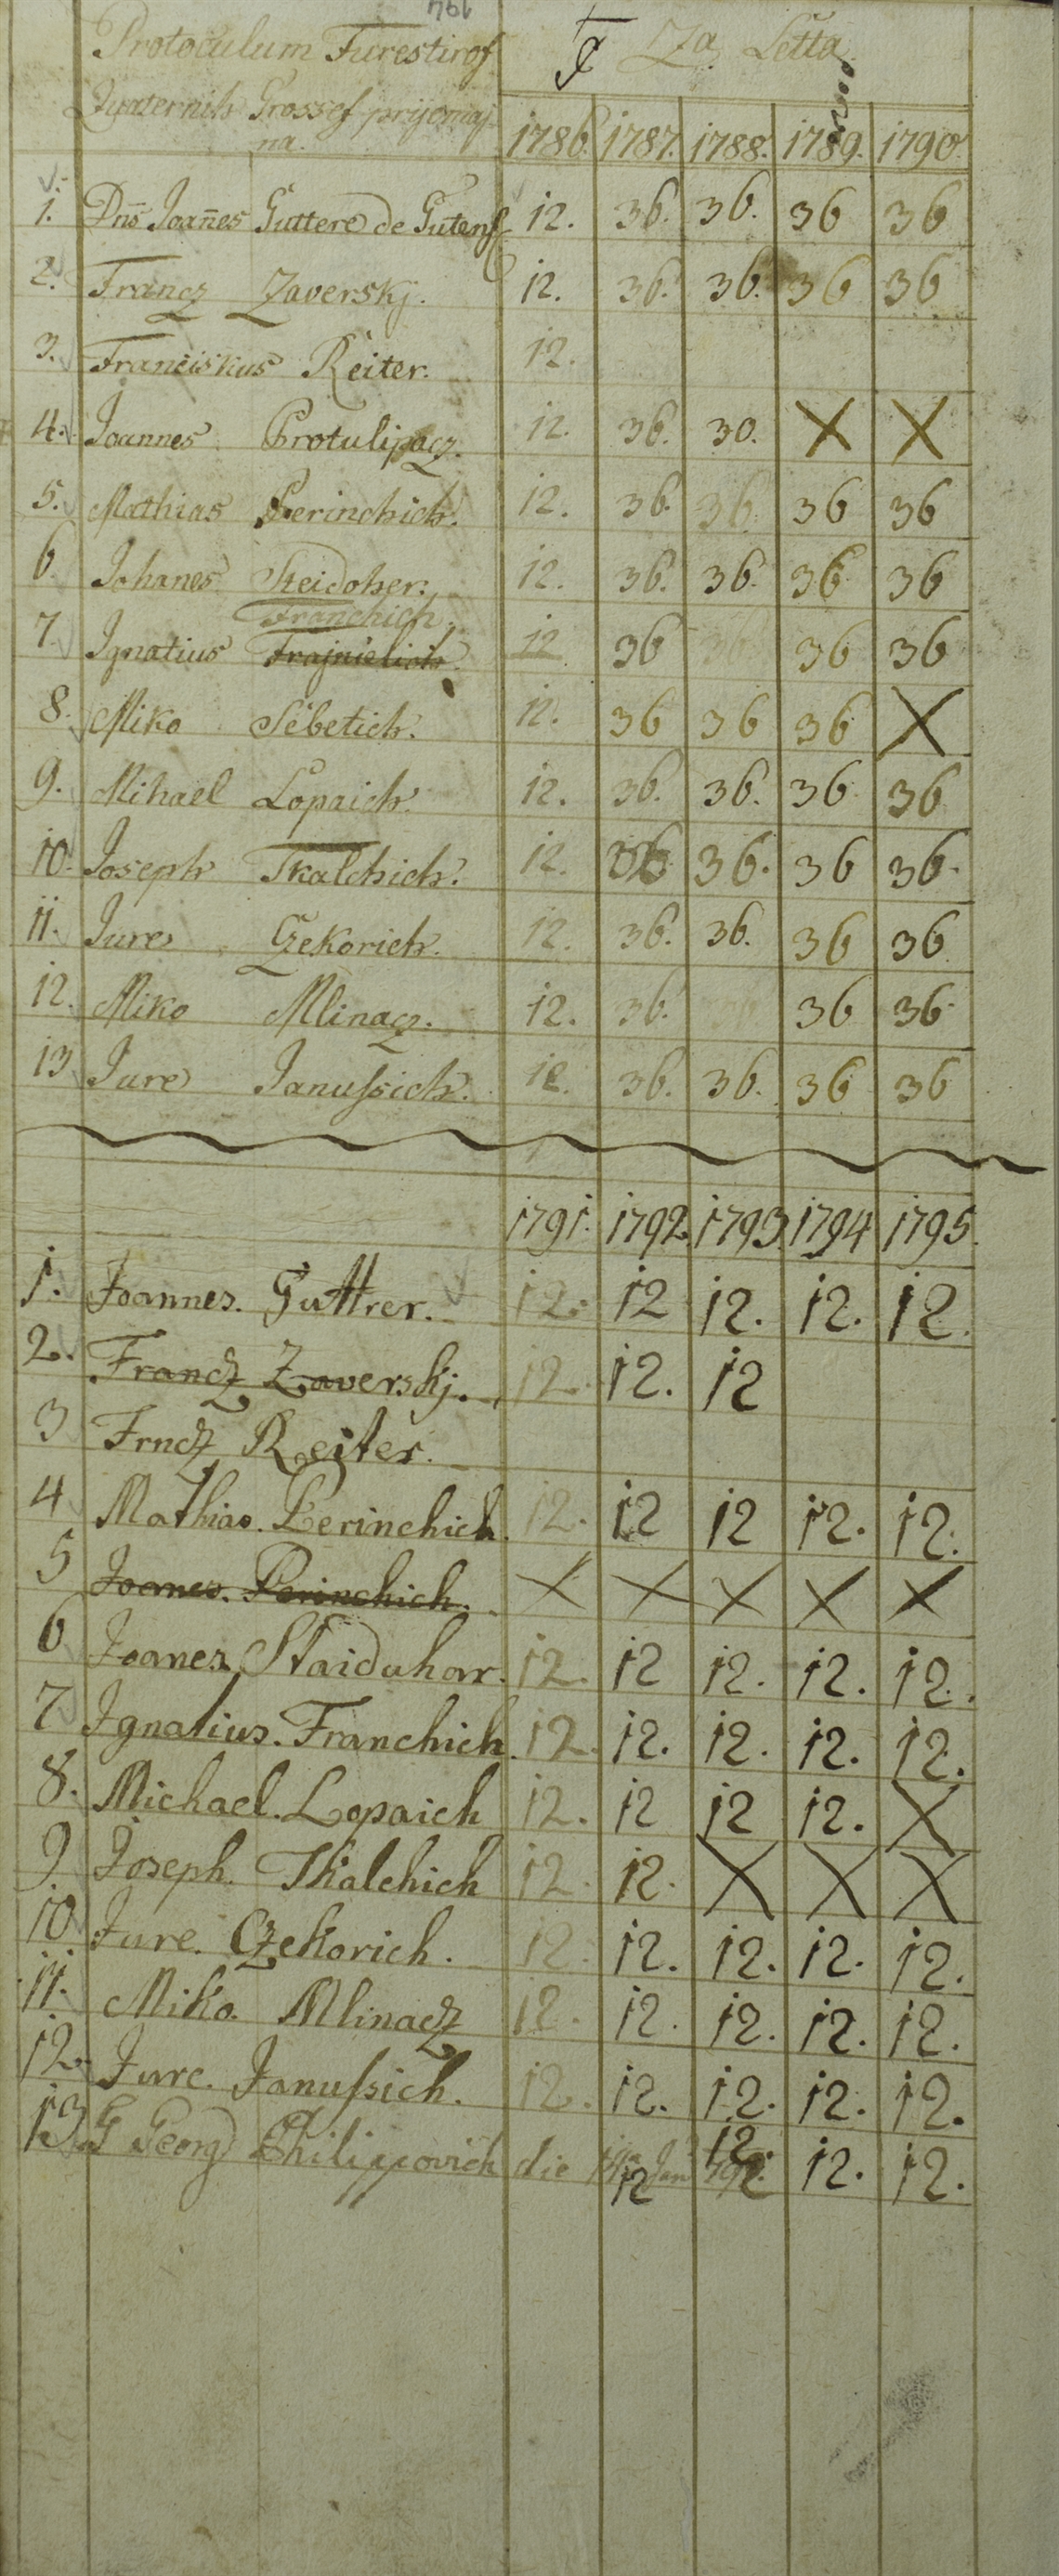 194
Protoculum Furestirof
Quaternih Grossef prijemaj
na.
Za Letta
1786. 1787. 1788. 1789. 1790.
1. Dn̄s Joan̄es Guttere de Gutenf 12. 36. 36. 36 36
2. Francz Zaverskj. 12. 36. 36. 36 36
3. Franciskus Reiter. 12.
4. Joannes Protulipacz. 12. 36. 30. X X
5. Mathias Perinchich. 12. 36. 36 36 36
6 Johanes Steidoher. 12. 36. 36. 36 36
Franchich
7. Ignatius Frajnielich. 12 36 36 36
8. Miko Sebetich. 12. 36 36 36 X
9. Mihael Lopaich. 12. 36. 36. 36 36
10. Joseph Tkalchich. 12. 36 36. 36 36.
11. Jure Czekorich. 12. 36. 36. 36 36
12. Miko Mlinacz. 12. 36. 36 36
13 Jure Januſsich. 12. 36. 36. 36 36
1791. 1792. 1793. 1794 1795.
1. Joannes. Guttrer. 12. 12 12. 12. 12.
2. Francz Zaverskj. 12. 12. 12
3 Frncz Reiter.
4 Mathias. Perinchich. 12. 12 12 12. 12.
5 Joanes. Perinchich. X X X X X
6 Joanes Staiduhar. 12. 12 12. 12. 12.
7 Ignatius. Franchich. 12. 12. 12. 12. 12.
8. Michael. Lopaich 12. 12 12 12. X
9. Joseph. Tkalchich 12. 12. X X X
10 Jure. Czekorich. 12. 12. 12. 12. 12.
11. Miko. Mlinacz 12. 12. 12. 12. 12.
12. Jure. Januſsich. 12. 12. 12. 12. 12.
13. G Georg Philippovich die Jan 12 12. 12. 12.